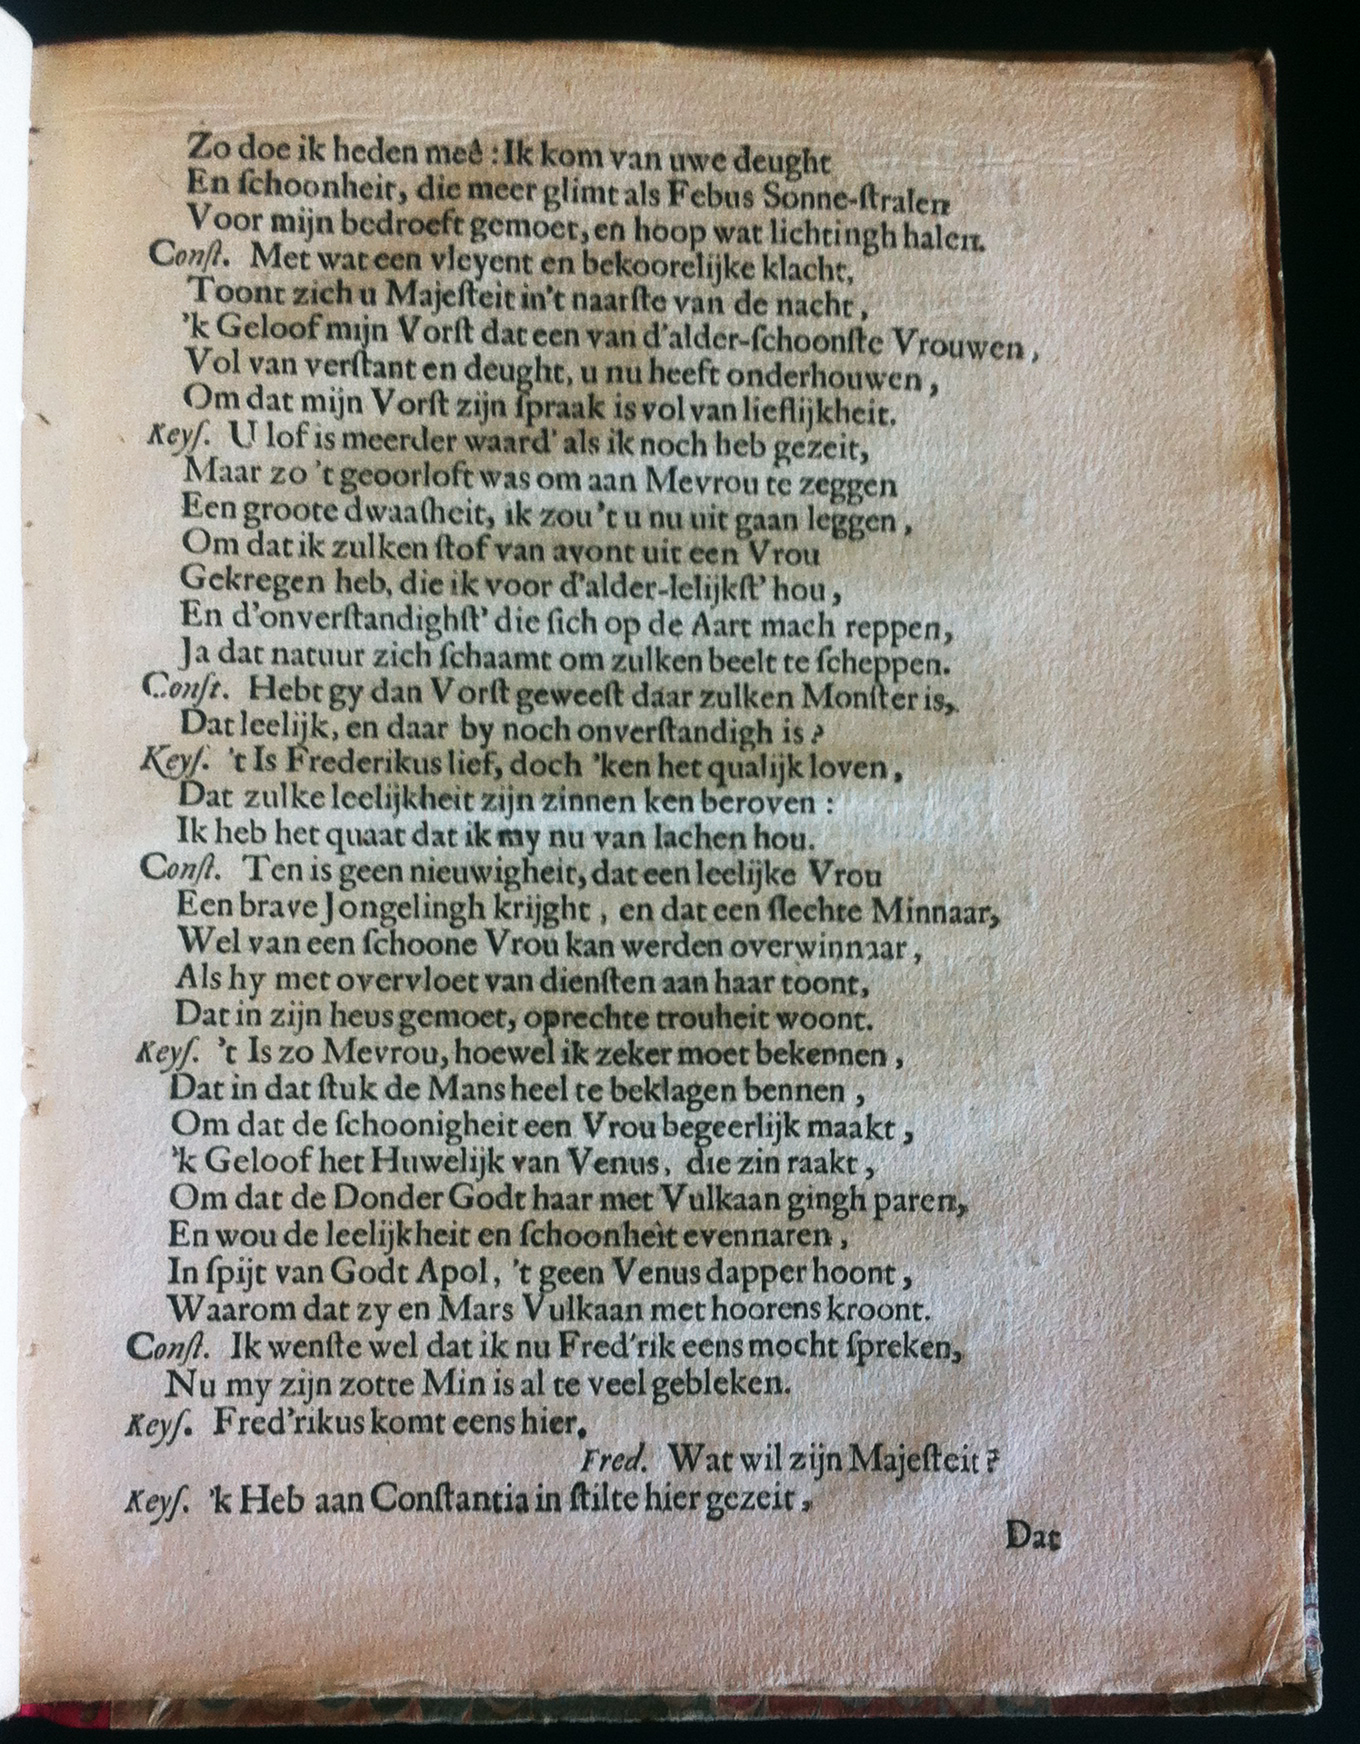 Zo doe ik heden meê : Ik kom van uwe deught
En ſchoonheit, die meer glimt als Febus Sonne-ſtralen
Voor mijn bedroeft gemoet, en hoop wat lichtingh halen.
Conſt. Met wat een vleyent en bekoorelijke klacht,
Toont zich u Majeſteit in't naarſte van de nacht,
'k Geloof mijn Vorſt dat een van d'alder-ſchoonſte Vrouwen,
Vol van verſtant en deught, u nu heeft onderhouwen,
Om dat mijn Vorſt zijn ſpraak is vol van lieflijkheit.
Keyſ. U lof is meerder waard' als ik noch heb gezeit,
Maar zo 't geoorloft was om aan Mevrou te zeggen
Een groote dwaaſheit, ik zou 't u nu uit gaan leggen,
Om dat ik zulken ſtof van avont uit een Vrou
Gekregen heb, die ik voor d'alder-lelijkſt' hou,
En d'onverſtandighſt' die ſich op de Aart mach reppen,
Ja dat natuur zich ſchaamt om zulken beelt te ſcheppen.
Conſt. Hebt gy dan Vorſt geweeſt daar zulken Monſter is,
Dat leelijk, en daar by noch onverſtandigh is?
Keyſ. 't Is Frederikus lief, doch 'ken het qualijk loven,
Dat zulke leelijkheit zijn zinnen ken beroven :
Ik heb het quaat dat ik my nu van lachen hou.
Conſt. Ten is geen nieuwigheit, dat een leelijke Vrou
Een brave Jongelingh krijght, en dat een ſlechte Minnaar,
Wel van een ſchoone Vrou kan werden overwinnaar,
Als hy met overvloet van dienſten aan haar toont,
Dat in zijn heus gemoet, oprechte trouheit woont.
Keyſ. 't Is zo Mevrou, hoewel ik zeker moet bekennen,
Dat in dat ſtuk de Mans heel te beklagen bennen,
Om dat de ſchoonigheit een Vrou begeerlijk maakt,
'k Geloof het Huwelijk van Venus, die zin raakt,
Om dat de Donder Godt haar met Vulkaan gingh paren,
En wou de leelijkheit en ſchoonheit evennaren,
In ſpijt van Godt Apol, 't geen Venus dapper hoont,
Waarom dat zy en Mars Vulkaan met hoorens kroont.
Conſt. Ik wenſte wel dat ik nu Fred'rik eens mocht ſpreken,
Nu my zijn zotte Min is al te veel gebleken.
Keyſ. Fred'rikus komt eens hier.
Fred. Wat wil zijn Majeſteit?
Keyſ. 'k Heb aan Conſtantia in ſtilte hier gezeit,
Dat